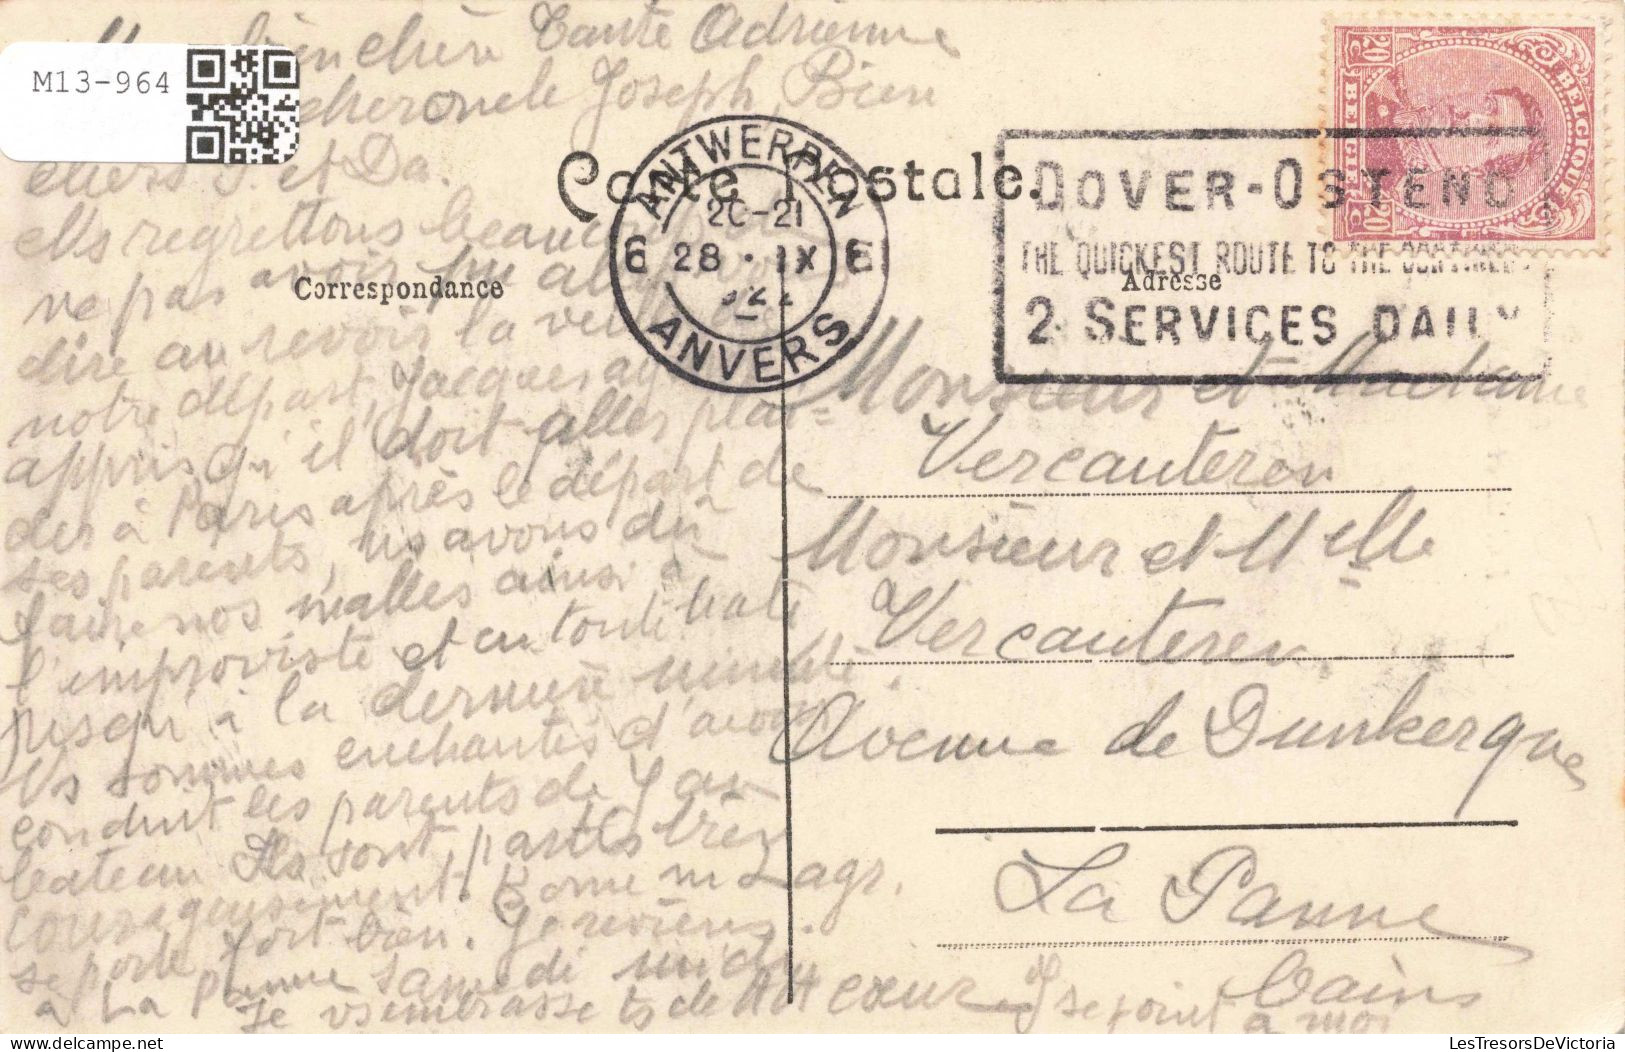 M13-964
bien chère Tante Adrienne
Joseph, Bien
chers J. et Da.
Ns regrettons beaucoup
ne pas avoir pu aller vous
dire au revoir la veille de
notre départ, Jacques ay
appris qu'il doit aller plai=
der à Paris après le départ de
ses parents, ns avons dû
faire nos malles ainsi à
l'improviste et en toute hâte
jusqu'à la dernière minute.
Ns sommes enchantés d'avoir
conduit les parents de J au
bateau Ils sont partis bien
courageusement. Bonne m
se porte fort bien. Je reviens
à La Panne samedi midi
Je vs embrasse ts de tt cœur
Carte Postale.
Correspondance
Adresse
ANTWERPEN
6 28 · IX 6
20-21
ANVERS
DOVER-OSTEND
THE QUICKEST ROUTE TO THE CONTINENT
2 SERVICES DAILY
BELGIQUE
20 C
20 C
Monsieur et Madame
Vercauteren
Monsieur et Melle
Vercauteren
Avenue de Dunkerque
La Panne
Bains
LesTresorsDeVictoria